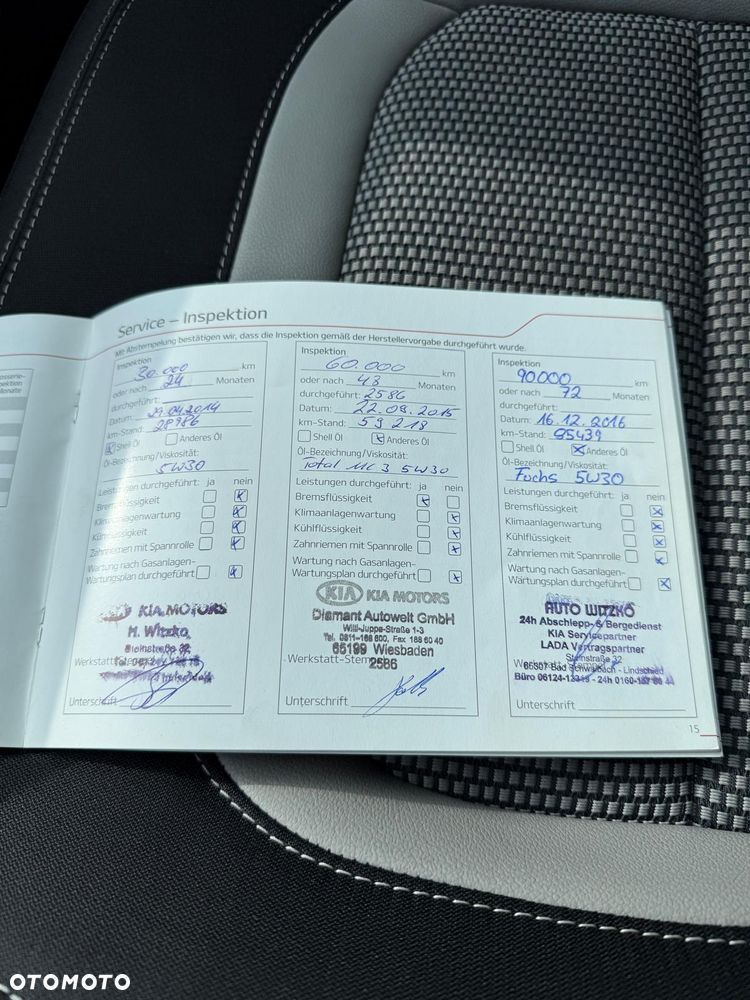 Service – Inspektion
Mit Abstempelung bestätigen wir, dass die Inspektion gemäß der Herstellervorgabe durchgeführt wurde.
Inspektion
30.000 km
oder nach 24 Monaten
durchgeführt:
Datum: 29.04.2014
km-Stand: 28986
Shell Öl Anderes Öl
Öl-Bezeichnung/Viskosität:
5W30
Leistungen durchgeführt: ja nein
Bremsflüssigkeit
Klimaanlagenwartung
Kühlflüssigkeit
Zahnriemen mit Spannrolle
Wartung nach Gasanlagen-
Wartungsplan durchgeführt
KIA MOTORS
H. Witzko
Steinstraße 32
Werkstatt
Unterschrift
Inspektion
60.000 km
oder nach 48 Monaten
durchgeführt: 2586
Datum: 22.09.2015
km-Stand: 59218
Shell Öl Anderes Öl
Öl-Bezeichnung/Viskosität:
Total MC3 5W30
Leistungen durchgeführt: ja nein
Bremsflüssigkeit
Klimaanlagenwartung
Kühlflüssigkeit
Zahnriemen mit Spannrolle
Wartung nach Gasanlagen-
Wartungsplan durchgeführt
KIA KIA MOTORS
Diamant Autowelt GmbH
Willi-Juppe-Straße 1-3
65199 Wiesbaden
Werkstatt-Stempel
2586
Unterschrift
Inspektion
90000 km
oder nach 72 Monaten
durchgeführt:
Datum: 16.12.2016
km-Stand: 85439
Shell Öl Anderes Öl
Öl-Bezeichnung/Viskosität:
Fuchs 5W30
Leistungen durchgeführt: ja nein
Bremsflüssigkeit
Klimaanlagenwartung
Kühlflüssigkeit
Zahnriemen mit Spannrolle
Wartung nach Gasanlagen-
Wartungsplan durchgeführt
AUTO WITZKO
24h Abschlepp- & Bergedienst
KIA Servicepartner
LADA Vertragspartner
Steinstraße 32
65307 Bad Schwalbach - Lindschied
Unterschrift
15
OTOMOTO